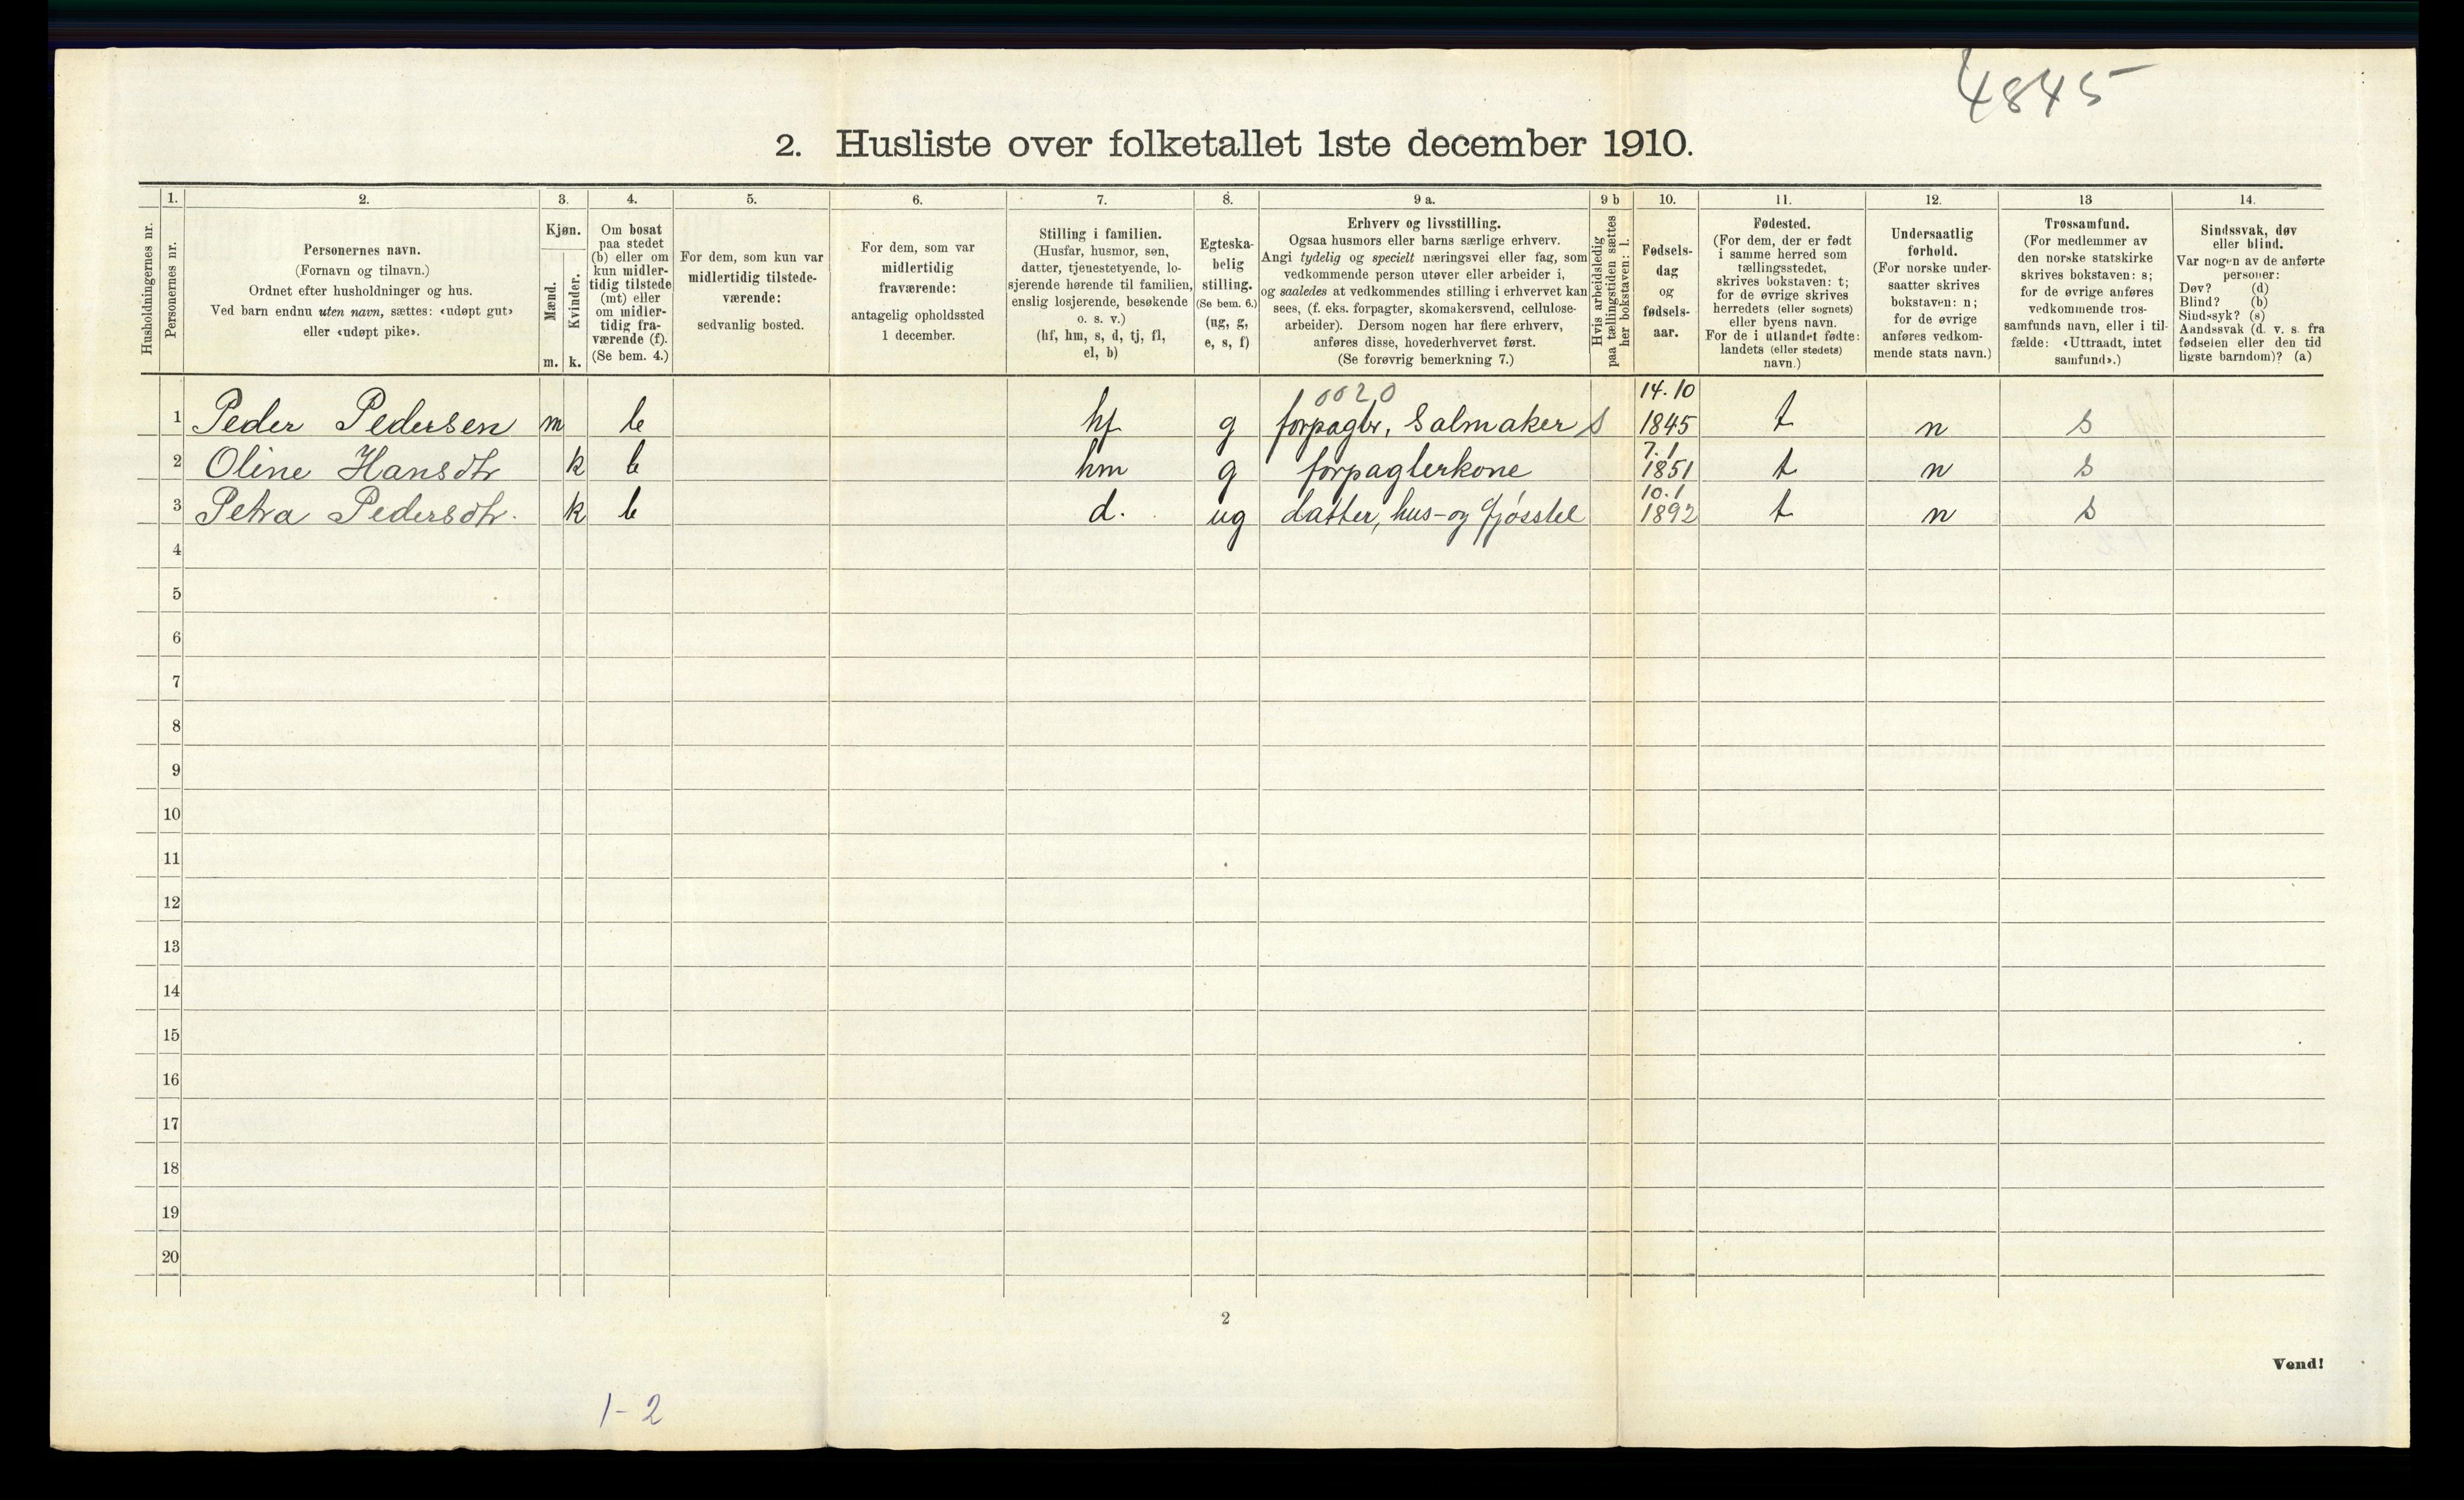 4845
2. Husliste over folketallet 1ste december 1910.
1. 2. 3. 4. 5. 6. 7. 8. 9 a. 9 b 10. 11. 12. 13 14.
Husholdningernes nr.
Personernes nr.
Personernes navn.
(Fornavn og tilnavn.)
Ordnet efter husholdninger og hus.
Ved barn endnu uten navn, sættes: «udøpt gut»
eller «udøpt pike».
Kjøn.
Mænd.
Kvinder.
m. k.
Om bosat
paa stedet
(b) eller om
kun midler-
tidig tilstede
(mt) eller
om midler-
tidig fra-
værende (f).
(Se bem. 4.)
For dem, som kun var
midlertidig tilstede-
værende:
sedvanlig bosted.
For dem, som var
midlertidig
fraværende:
antagelig opholdssted
1 december.
Stilling i familien.
(Husfar, husmor, søn,
datter, tjenestetyende, lo-
sjerende hørende til familien,
enslig losjerende, besøkende
o. s. v.)
(hf, hm, s, d, tj, fl,
el, b)
Egteska-
belig
stilling.
(Se bem. 6.)
(ug, g,
e, s, f)
Erhverv og livsstilling.
Ogsaa husmors eller barns særlige erhverv.
Angi tydelig og specielt næringsvei eller fag, som
vedkommende person utøver eller arbeider i,
og saaledes at vedkommendes stilling i erhvervet kan
sees, (f. eks. forpagter, skomakersvend, cellulose-
arbeider). Dersom nogen har flere erhverv,
anføres disse, hovederhvervet først.
(Se forøvrig bemerkning 7.)
Hvis arbeidsledig
paa tællingstiden sættes
her bokstaven: l.
Fødsels-
dag
og
fødsels-
aar.
Fødested.
(For dem, der er født
i samme herred som
tællingsstedet,
skrives bokstaven: t;
for de øvrige skrives
herredets (eller sognets)
eller byens navn.
For de i utlandet fødte:
landets (eller stedets)
navn.)
Undersaatlig
forhold.
(For norske under-
saatter skrives
bokstaven: n;
for de øvrige
anføres vedkom-
mende stats navn.)
Trossamfund.
(For medlemmer av
den norske statskirke
skrives bokstaven: s;
for de øvrige anføres
vedkommende tros-
samfunds navn, eller i til-
fælde: «Uttraadt, intet
samfund».)
Sindssvak, døv
eller blind.
Var nogen av de anførte
personer:
Døv? (d)
Blind? (b)
Sindssyk? (s)
Aandssvak (d. v. s. fra
fødselen eller den tid
ligste barndom)? (a)
0020 14.10
1 Peder Pedersen m b hf g forpagtr, Salmaker s 1845 t n s
7.1
2 Oline Hansdtr k b hm g forpagterkone 1851 t n s
10.1
3 Petra Pedersdtr. k b d. ug datter, hus- og fjøsstel 1892 t n s
4
5
6
7
8
9
10
11
12
13
14
15
16
17
18
19
20
2
Vend!
1-2